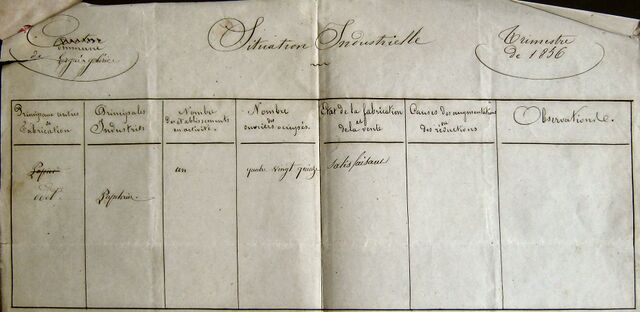 Commune
de
Situation Industrielle
Trimestre
de 1856
Principaux centres
de
Fabrication
Principales
Industries
Nombre
des établissements
en activité.
Nombre
des
ouvriers occupés.
Etat de la fabrication
et
de la vente
Causes des augmentations
ou
des réductions
Observations.
un
quatre vingt quinze
satisfaisant
Papeterie